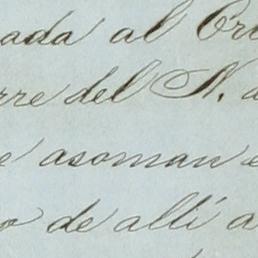 ada al Ori
rre del N. d
e asoman e
o de alli a